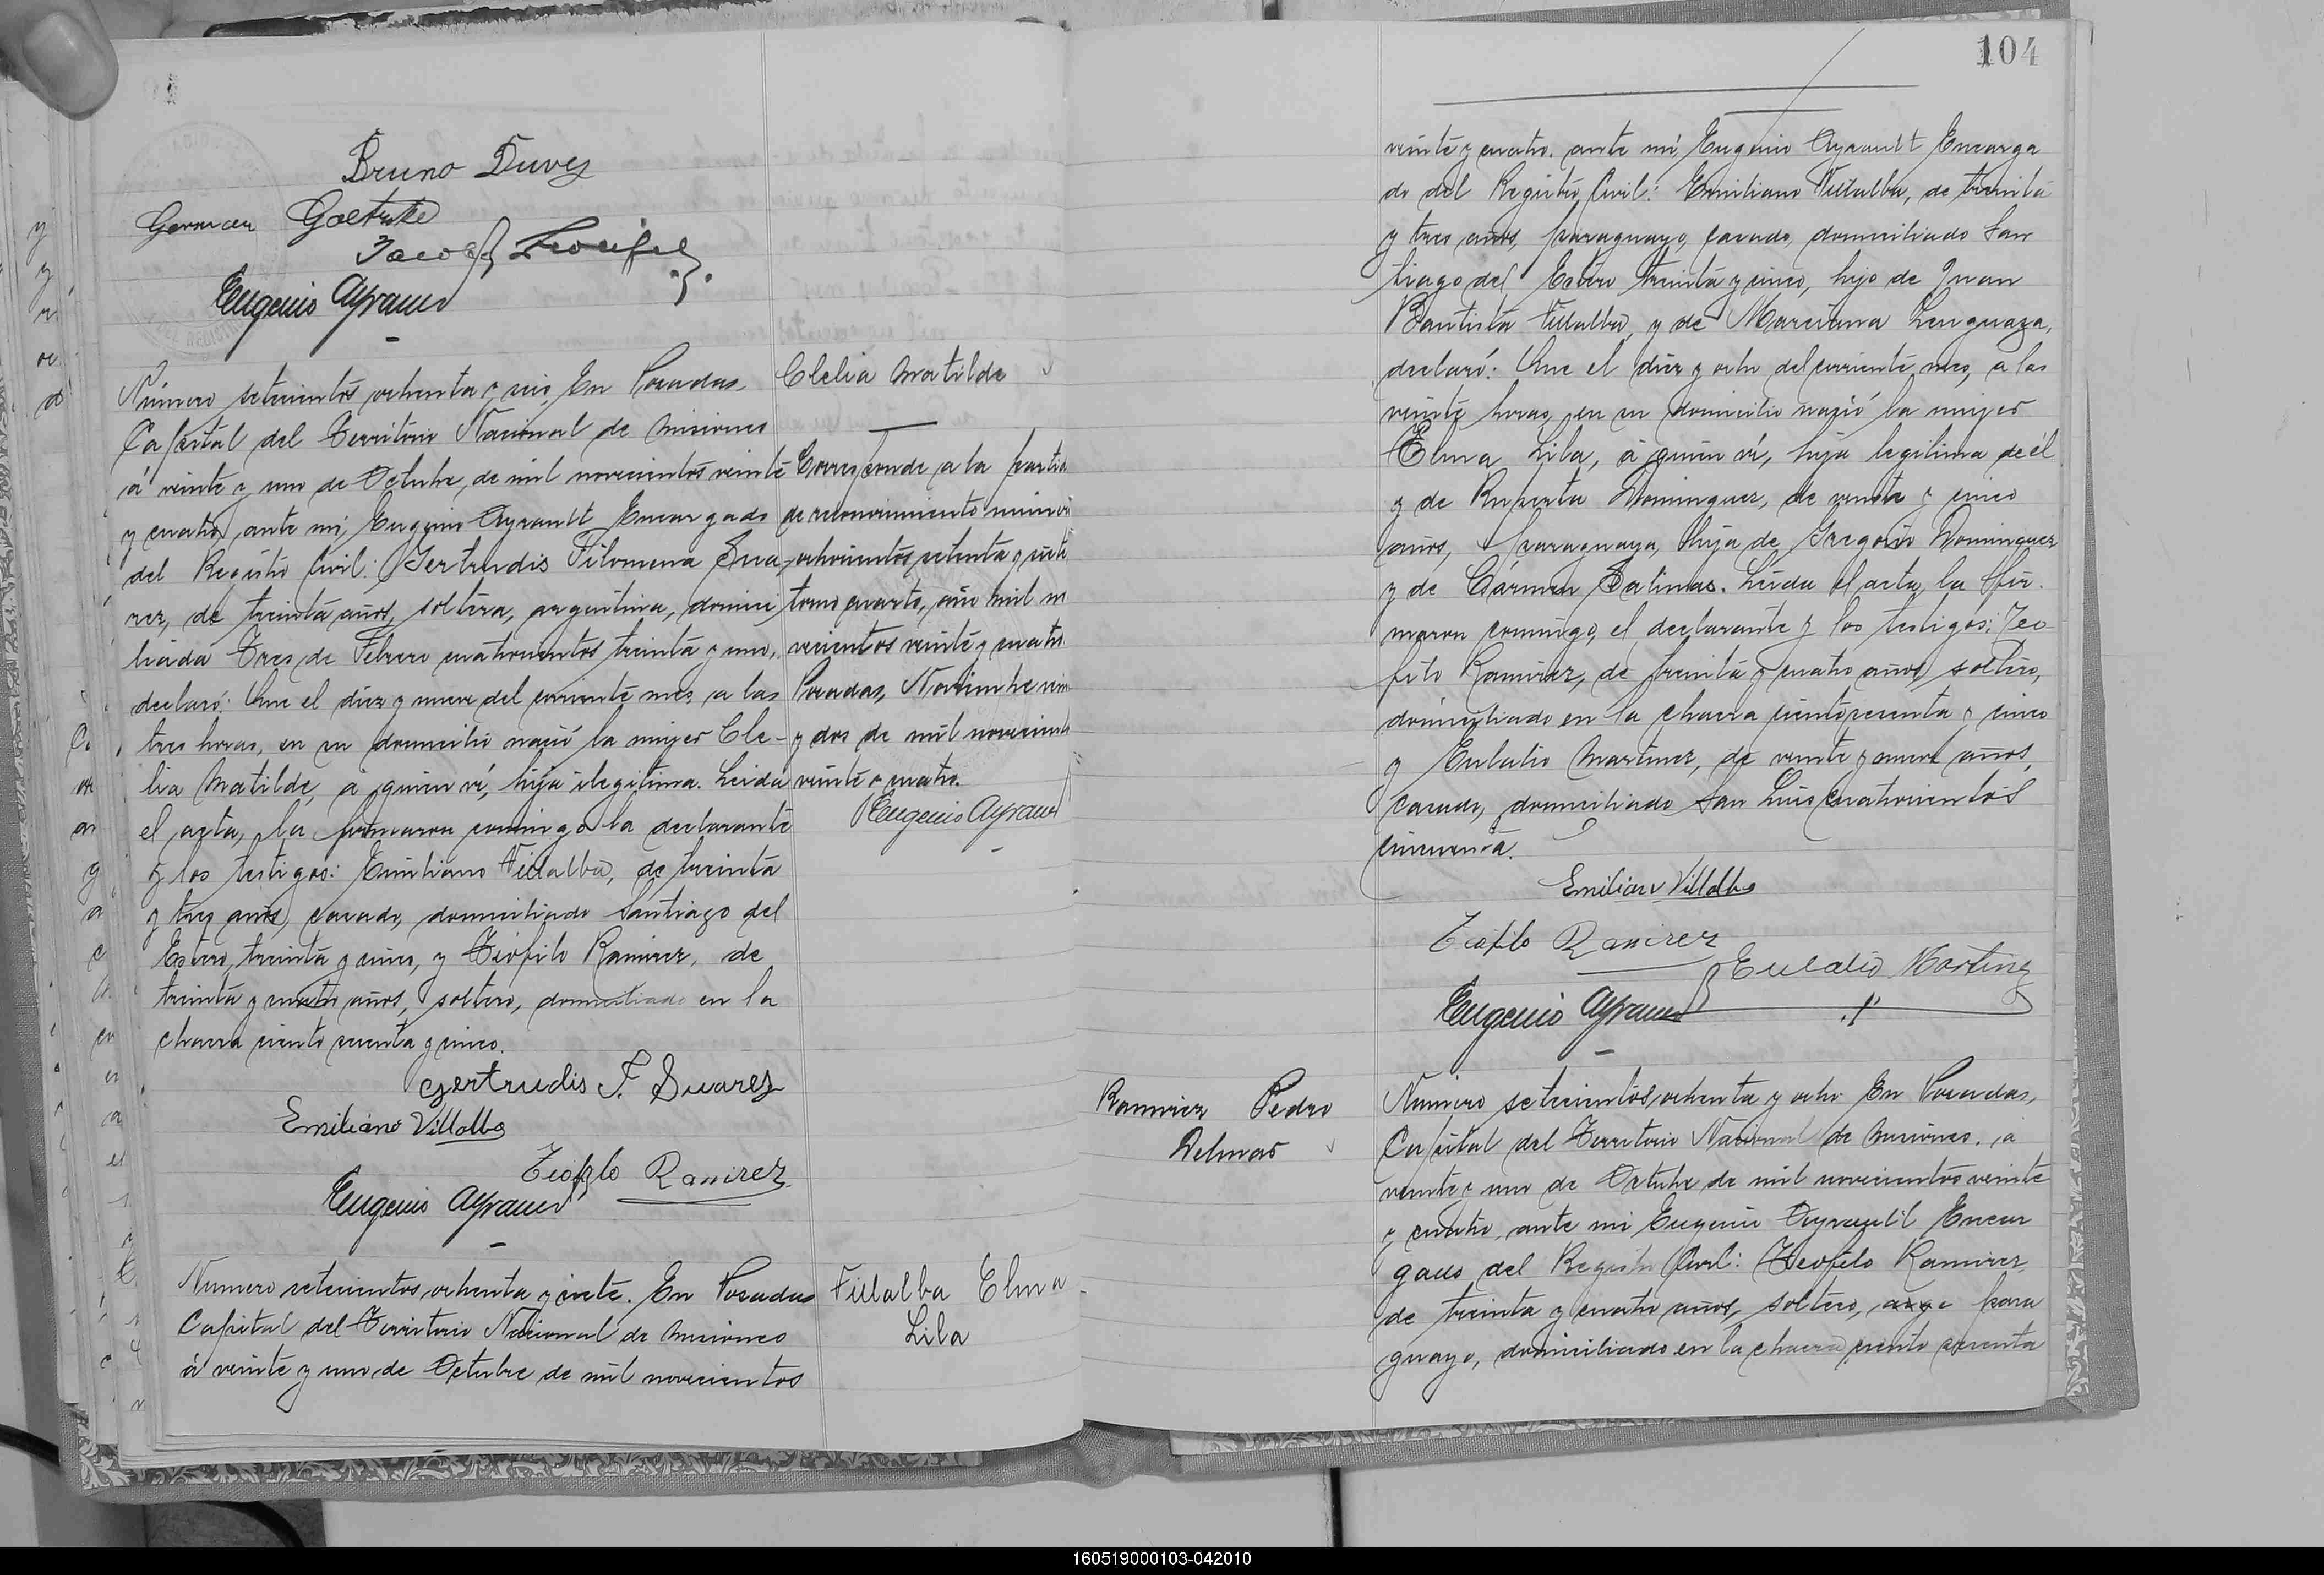 Bruno Duvez
German Goetzke
Jacob
Eugenio Ayrault
Número setecientos ochenta y seis, En Posadas,
Capital del Territorio Nacional de Misiones
á veinte y uno de Octubre, de mil novecientos veinte
y cuatro, ante mi, Eugenio Ayrault Encargado
del Registro Civil: Gertrudis Filomena Sua-
rez, de treinta años, soltera, argentina, domici
liada Tres de Febrero cuatrocientos treinta y uno,
declaró: Que el diez y nueve del corriente mes, a las
tres horas, en su domicilio nació la mujer Cle-
lia Matilde, á quien ví, hija ilegitima. Leida
el acta, la firmaron conmigo la declarante
y los testigos: Emiliano Villalba, de treinta
y tres años, casado, domiciliado Santiago del
Estero, treinta y cinco, y Teófilo Ramirez, de
treinta y cuatro años, soltero, domiciliado en la
chacra ciento sesenta y cinco.
Gertrudis F. Suarez
Emiliano Villalba
Teofilo Ramirez
Eugenio Ayrault
Numero setecientos ochenta y siete. En Posadas
Capital del Territorio Nacional de Misiones
á veinte y uno de Octubre de mil novecientos
Clelia Matilde
Corresponde a la partid
de reconocimiento número
ochocientos setenta y siete
tomo cuarto, año mil no
vecientos veinte y cuatro
Posadas, Noviembre vein
y dos de mil novecientos
veinte y cuatro.
Eugenio Ayrault
Villalba Elma
Lila
104
veinte y cuatro. ante mi, Eugenio Ayrault Encarga
do del Registro Civil: Emiliano Villalba, de treinta
y tres años, paraguayo, casado, domiciliado San
tiago del Estero treinta y cinco, hijo de Juan
Bautista Villalba, y de Marciana Lenguaza,
declaró: Que el diez y ocho del corriente mes, a las
veinte horas, en su domicilio nació la mujer
Elma Lila, á quien ví, hija legitima de él
y de Ruperta Dominguez, de veinte y cinco
años, paraguaya, hija de Gregorio Dominguez
y de Cármen Salinas. Leida el acta, la fir-
maron conmigo, el declarante y los testigos: Teo
filo Ramirez, de treinta y cuatro años, soltero,
domiciliado en la chacra ciento sesenta y cinco
y Eulalio Martinez, de veinte y nueve años,
casado, domiciliado San Luis cuatrocientos
cincuenta.
Emiliano Villalba
Teofilo Ramirez
Eulalio Martinez
Eugenio Ayrault
Ramirez Pedro
Delmar
Numero setecientos, ochenta y ocho En Posadas,
Capital del Territorio Nacional de Misiones. á
veinte y uno de Octubre de mil novecientos veinte
y cuatro, ante mi Eugenio Ayrault Encar
gado del Registro Civil: Teofilo Ramirez
de treinta y cuatro años, soltero, arge para
guayo, domiciliado en la chacra ciento sesenta
160519000103-042010